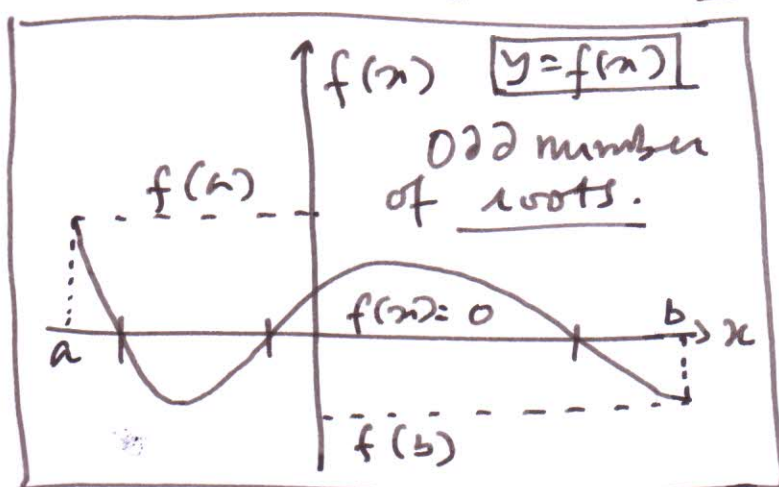 f(x) y=f(x)
Odd number
of roots.
f(a)
f(x)=0
a
b
x
f(b)